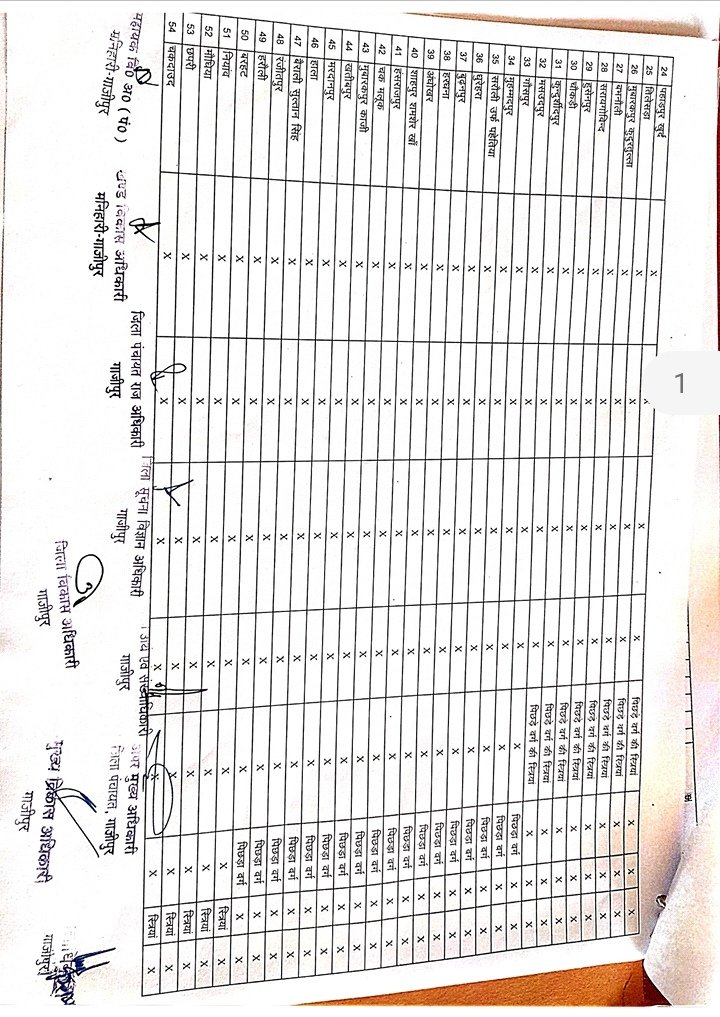 24 पहाडपुर खुर्द X X X X पिछड़े वर्ग की स्त्रियां X X X
25 सिलेसड़ा X X X X पिछड़े वर्ग की स्त्रियां X X X
26 मुबारकपुर कुदरतुल्ला X X X X पिछड़े वर्ग की स्त्रियां X X X
27 बभनौली X X X X पिछड़े वर्ग की स्त्रियां X X X
28 सरायगोविन्द X X X X पिछड़े वर्ग की स्त्रियां X X X
29 हुसेनपुर X X X X पिछड़े वर्ग की स्त्रियां X X X
30 चौकड़ी X X X X पिछड़े वर्ग की स्त्रियां X X X
31 कुन्दुर्शीदपुर X X X X पिछड़े वर्ग की स्त्रियां X X X
32 मसउदपुर X X X X पिछड़े वर्ग की स्त्रियां X X X
33 गौसपुर X X X X पिछड़े वर्ग की स्त्रियां X X X
34 मुहम्मदपुर X X X X X पिछड़ा वर्ग X X
35 सरौली उर्फ पहेतिया X X X X X पिछड़ा वर्ग X X
36 घुरेहरा X X X X X पिछड़ा वर्ग X X
37 बुढ़नपुर X X X X X पिछड़ा वर्ग X X
38 हरधना X X X X X पिछड़ा वर्ग X X
39 अधोखर X X X X X पिछड़ा वर्ग X X
40 शाहपुर शमशेर खाँ X X X X X पिछड़ा वर्ग X X
41 हंसराजपुर X X X X X पिछड़ा वर्ग X X
42 चक मलूक X X X X X पिछड़ा वर्ग X X
43 मुबारकपुर काजी X X X X X पिछड़ा वर्ग X X
44 खतीबपुर X X X X X पिछड़ा वर्ग X X
45 मरदानपुर X X X X X पिछड़ा वर्ग X X
46 हाला X X X X X पिछड़ा वर्ग X X
47 बैराली सुल्तान सिंह X X X X X पिछड़ा वर्ग X X
48 रंजीतपुर X X X X X पिछड़ा वर्ग X X
49 हरौली X X X X X पिछड़ा वर्ग X X
50 बरहट X X X X X पिछड़ा वर्ग X X
51 नियांव X X X X X X स्त्रियां X
52 मौधिया X X X X X X स्त्रियां X
53 छपरी X X X X X X स्त्रियां X
54 चकदाउद X X X X X X स्त्रियां X
सहायक वि0 अ0 (पं0) खण्ड विकास अधिकारी जिला पंचायत राज अधिकारी जिला सूचना विज्ञान अधिकारी अर्थ एवं संख्याधिकारी अपर मुख्य अधिकारी
मनिहारी-गाजीपुर मनिहारी-गाजीपुर गाजीपुर गाजीपुर गाजीपुर जिला पंचायत, गाजीपुर
जिला विकास अधिकारी मुख्य विकास अधिकारी
गाजीपुर गाजीपुर गाजीपुर
1